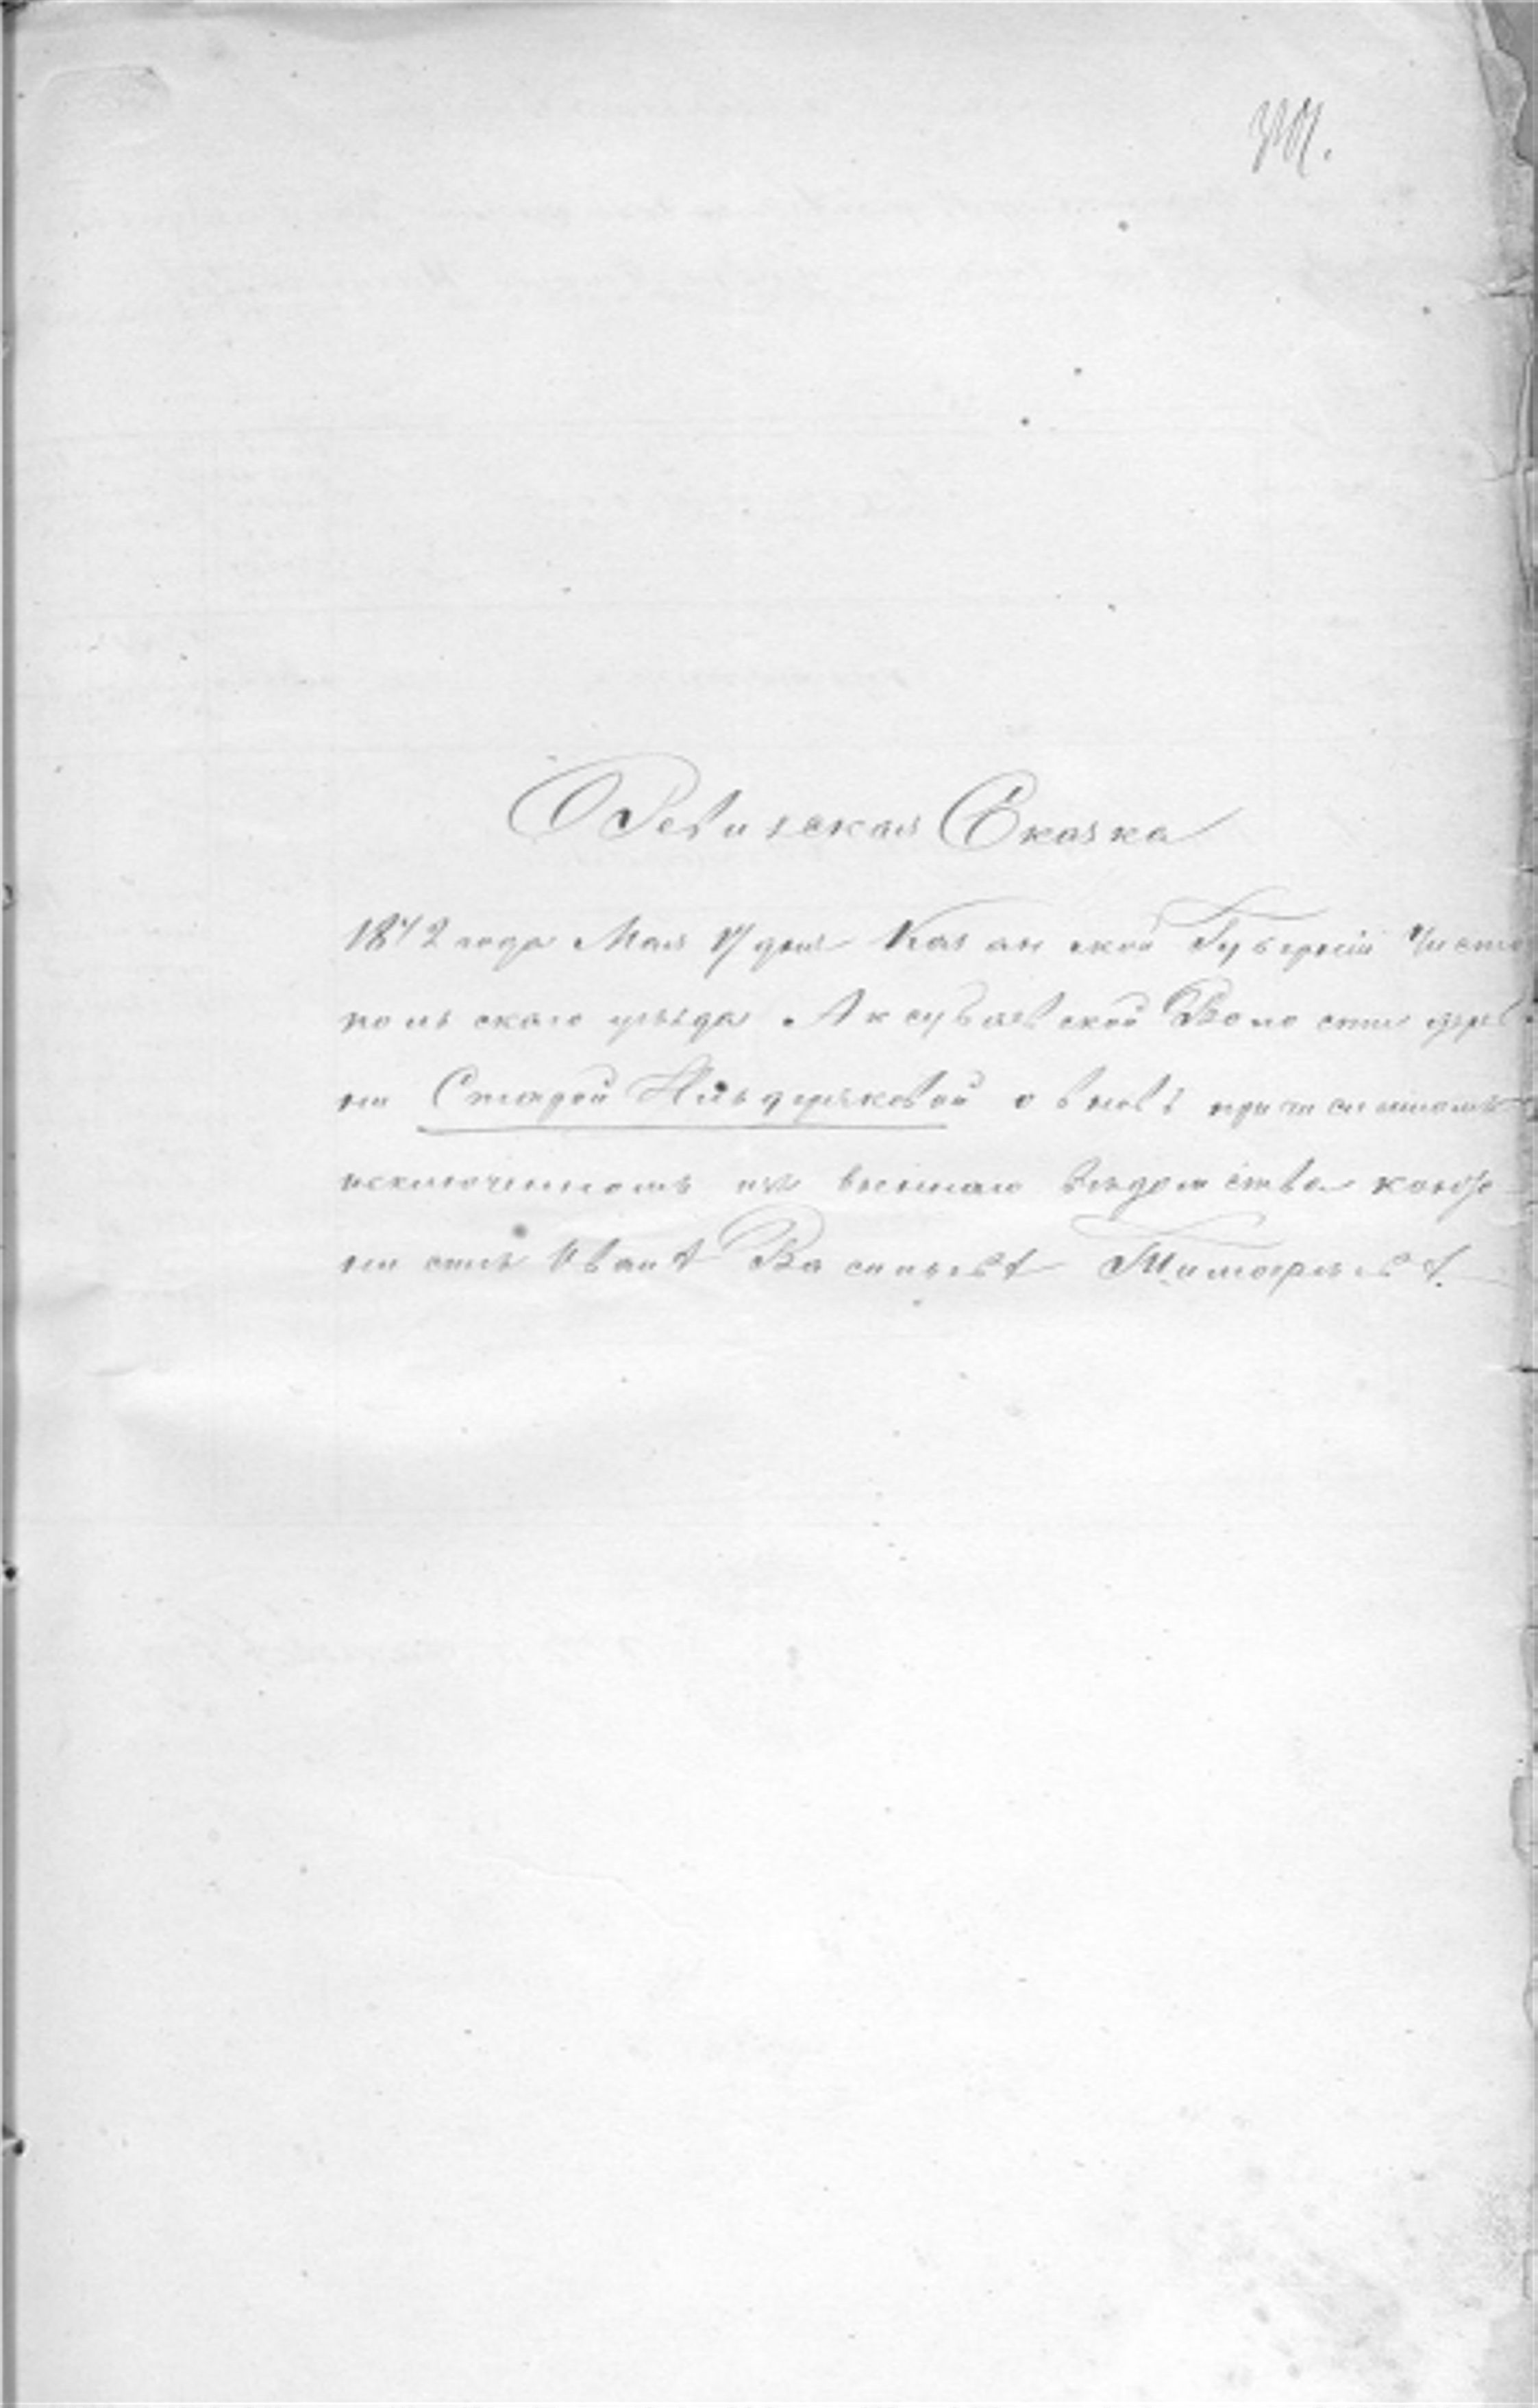 Ревизская Сказка
1872 года Мая 17 дня Казанской Губерніи Чисто
польскаго уѣзда Аксубаевской Волости дерев
ни Старой Ильдеряковой о вновь причисленномъ
исключенномъ изъ военнаго вѣдомства канто
нистѣ Иванѣ Васильевѣ Тимофѣевѣ.